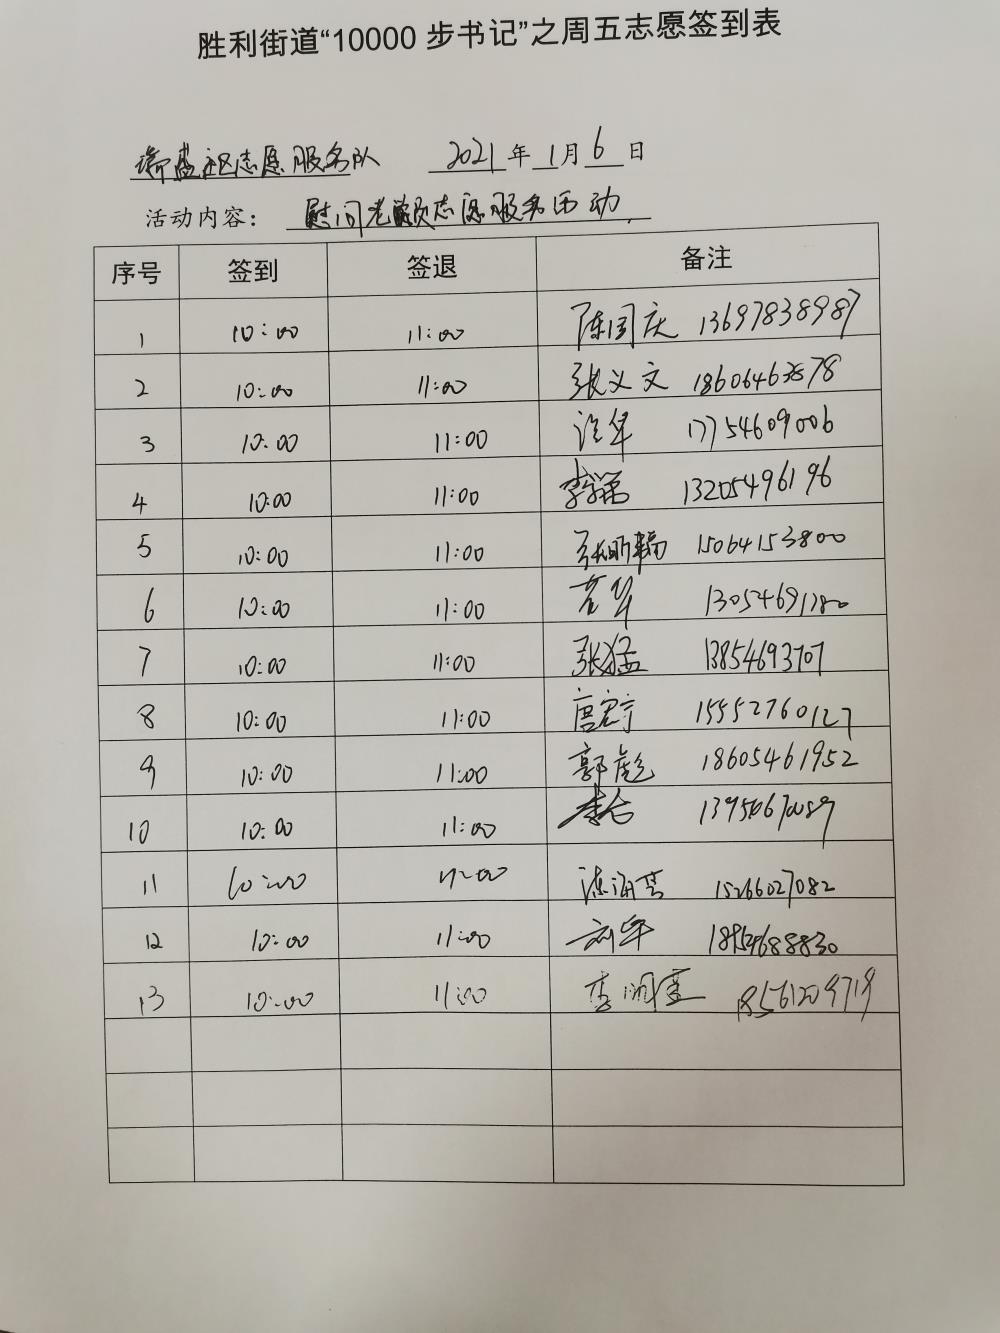 胜利街道“10000 步书记”之周五志愿签到表
盛社区志愿服务队 2021 年 1 月 6 日
活动内容： 慰问老党员志愿服务活动.
序号 签到 签退 备注
1 10:00 11:00 陈国庆 13697838987
2 10:00 11:00 张义文 186064678
3 10:00 11:00 17754609006
4 10:00 11:00 李 13205496196
5 10:00 11:00 张 15064153800
6 10:00 11:00 13054691780
7 10:00 11:00 张猛 13854693707
8 10:00 11:00 唐宁 15552760127
9 10:00 11:00 郭彪 18605461952
10 10:00 11:00 李
11 10:00 11:00 15266027082
12 10:00 11:00 刘军
13 10:00 11:00 李 18561209719